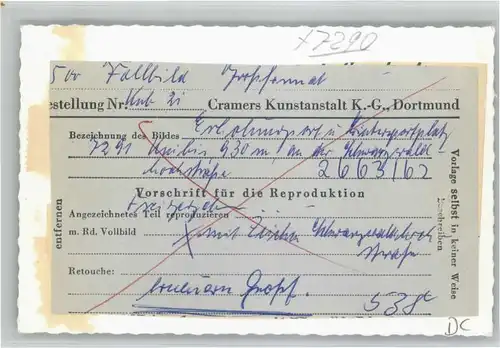 x7290
500 Vollbild Großformat
estellung Nr. Knb 2i Cramers Kunstanstalt K.-G., Dortmund
Bezeichnung des Bildes Erholungsort u. Wintersportplatz
7291 Kniebis 930 m, an der Schwarzwald-
hochstraße 2663/62
Vorschrift für die Reproduktion
Angezeichnetes Teil reproduzieren
m. Rd. Vollbild mit Schwarzwaldhoch
straße
Retouche:
538c
entfernen
Vorlage selbst in keiner Weise
beschreiben
DC